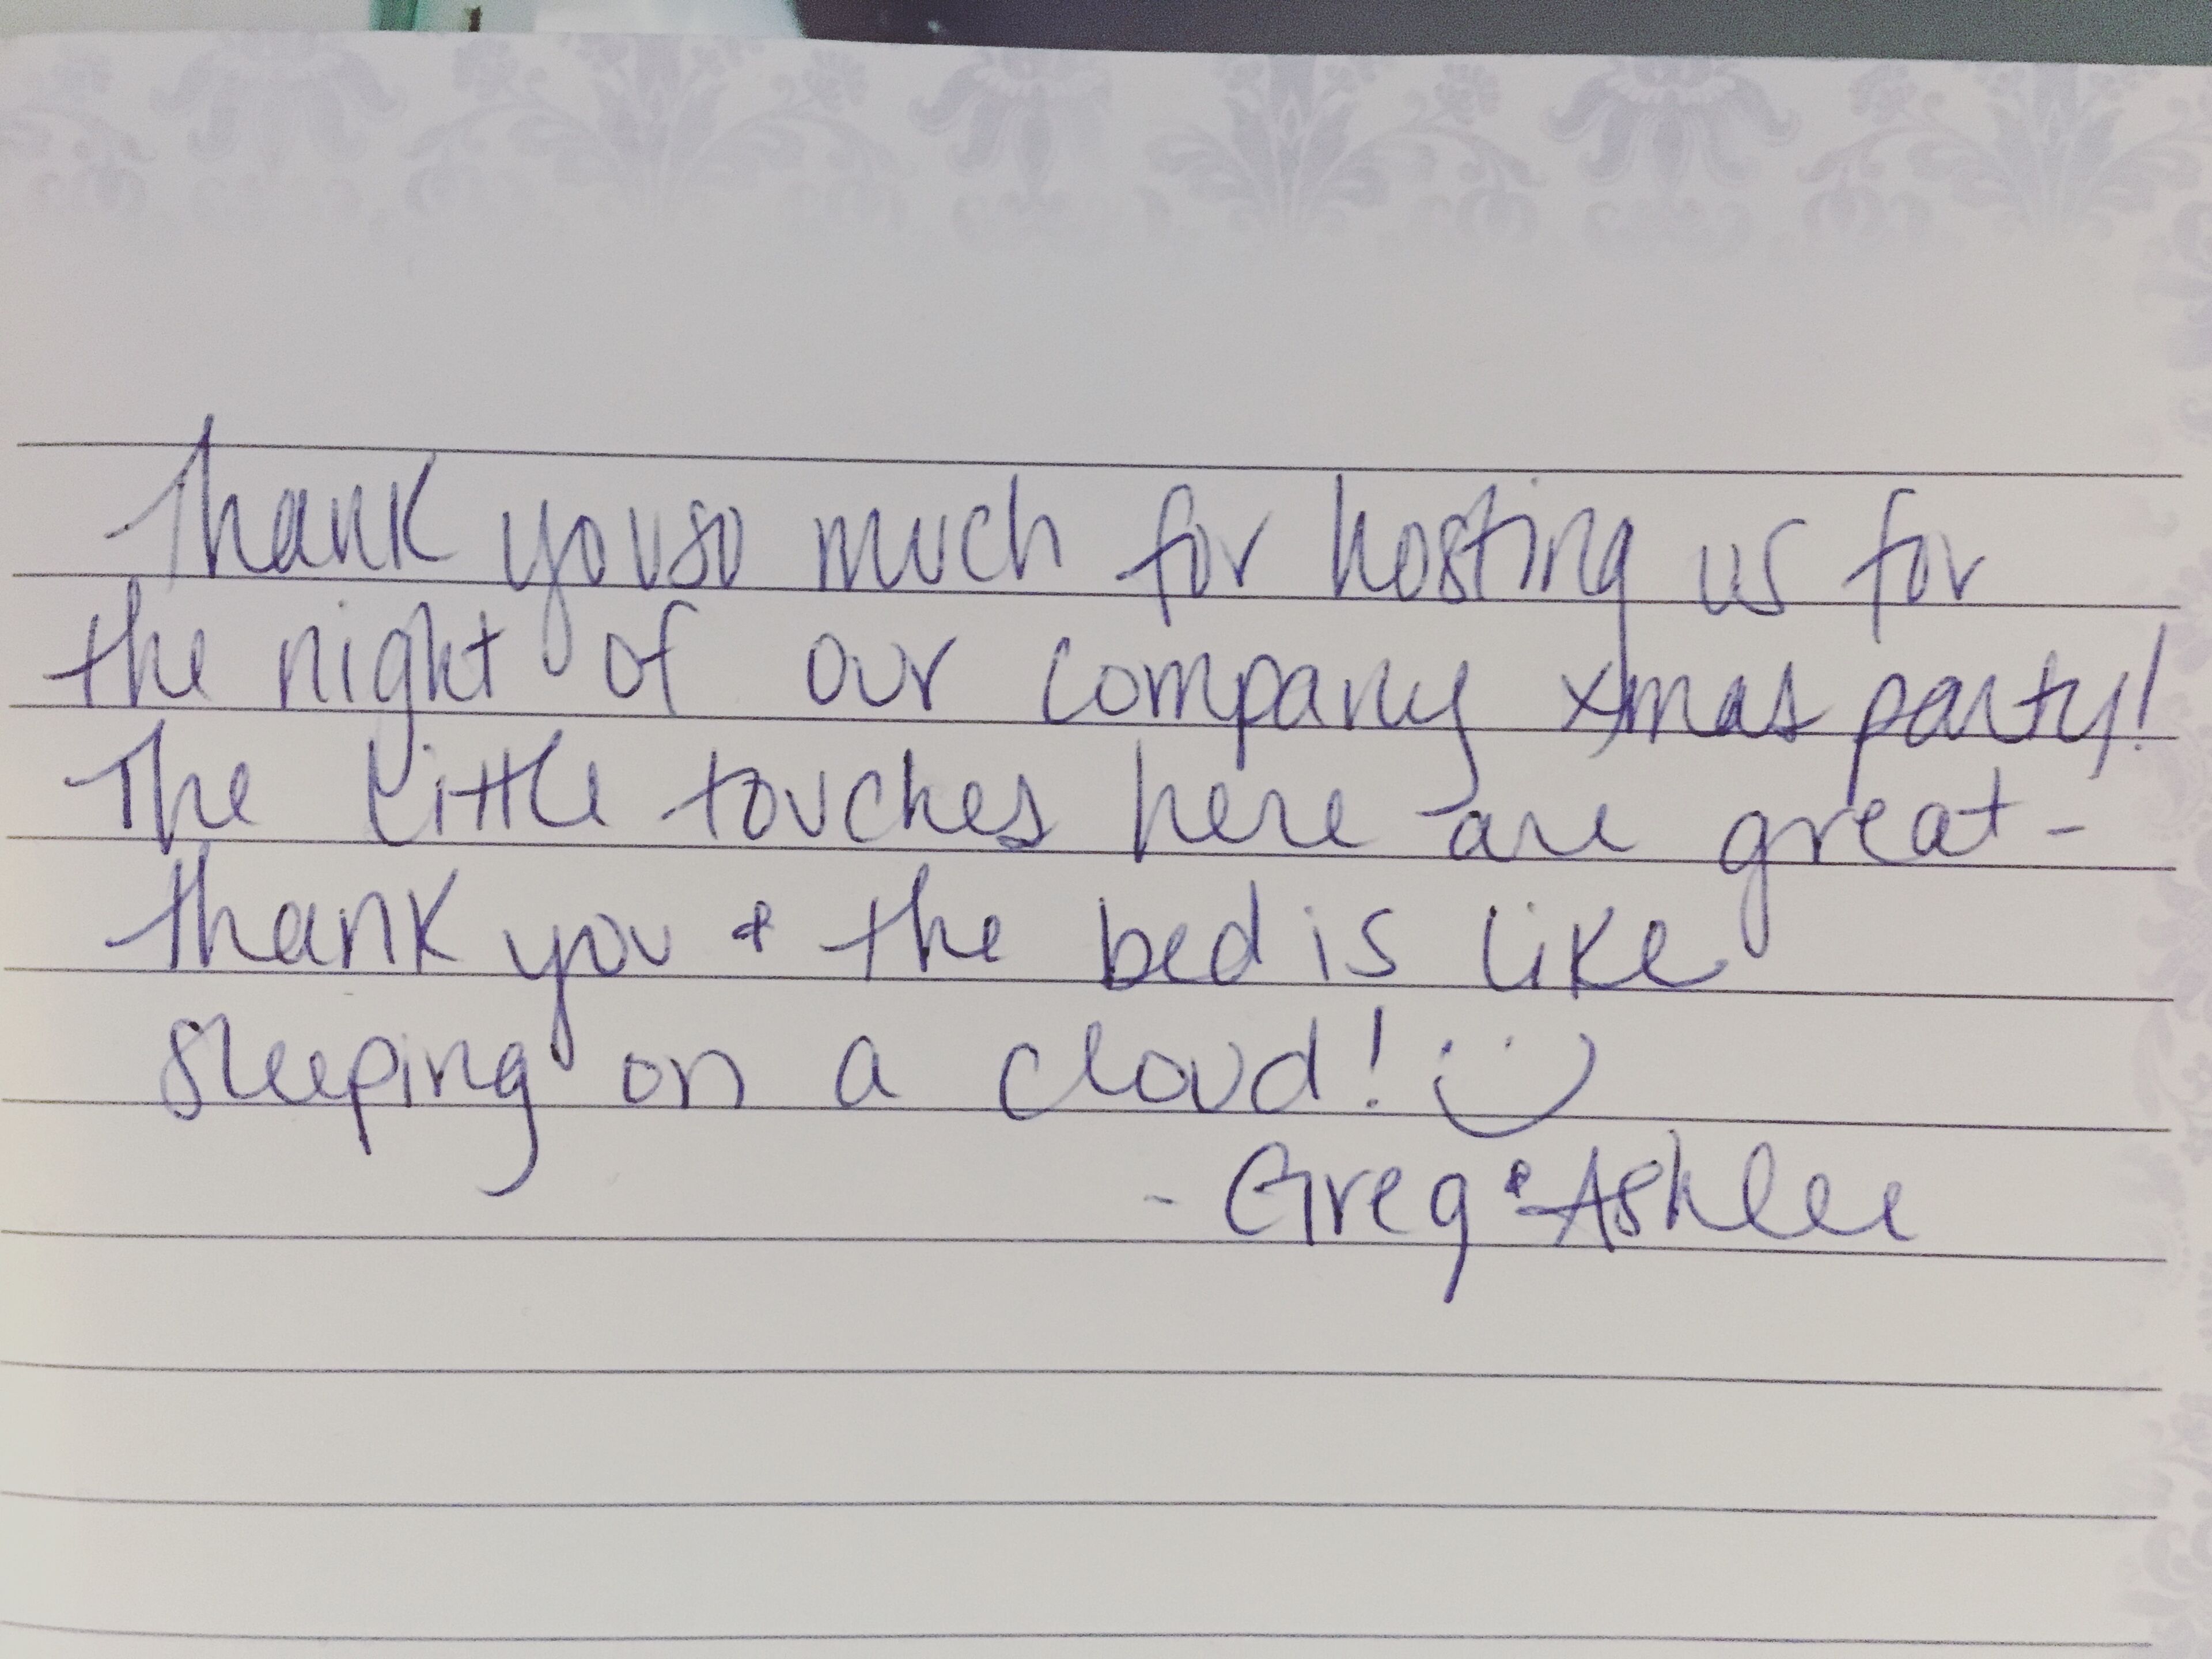 Thank you so much for hosting us for
the night of our company xmas party!
The little touches here are great -
thank you & the bed is like
sleeping on a cloud! :)
- Greg & Ashlee